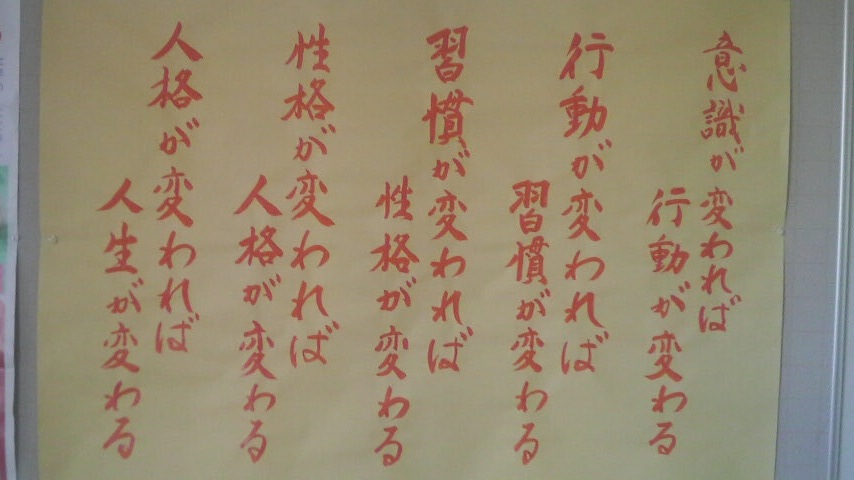 意識が変われば
行動が変わる
行動が変われば
習慣が変わる
習慣が変われば
性格が変わる
性格が変われば
人格が変わる
人格が変われば
人生が変わる